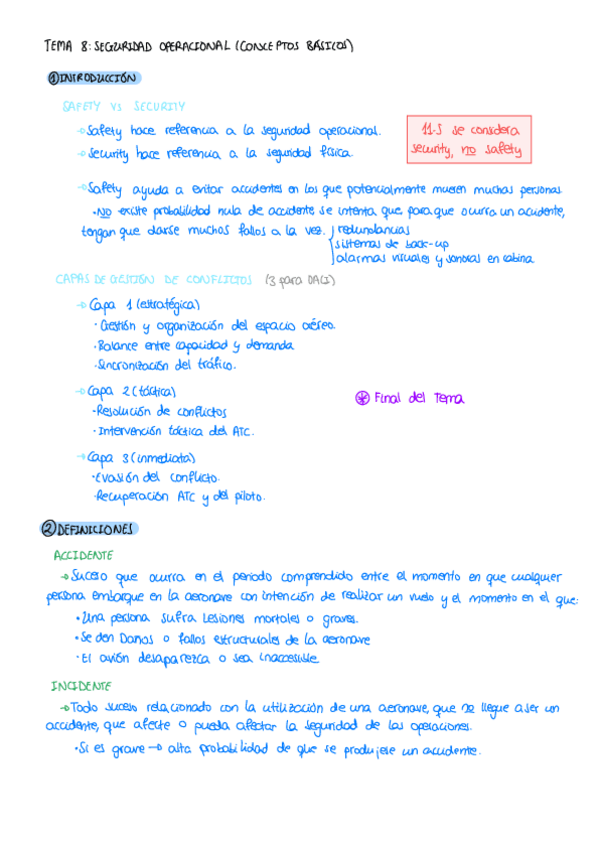 TEMA 8: SEGURIDAD OPERACIONAL (CONCEPTOS BÁSICOS)
① INTRODUCCIÓN
SAFETY VS SECURITY
→ Safety hace referencia a la seguridad operacional.
→ Security hace referencia a la seguridad física.
11-S se considera
security, no safety
→ Safety ayuda a evitar accidentes en los que potencialmente mueren muchas personas.
• NO existe probabilidad nula de accidente se intenta que para que ocurra un accidente,
tengan que darse muchos fallos a la vez.
redundancias
sistemas de back-up
alarmas visuales y sonoras en cabina.
CAPAS DE GESTIÓN DE CONFLICTOS (3 para OACI)
→ Capa 1 (estratégica)
· Gestión y organización del espacio aéreo.
· Balance entre capacidad y demanda
· Sincronización del tráfico.
→ Capa 2 (táctica)
· Resolución de conflictos
· Intervención táctica del ATC.
⊛ Final del Tema
→ Capa 3 (inmediata)
· Evasión del conflicto.
· Recuperación ATC y del piloto.
② DEFINICIONES
ACCIDENTE
→ Suceso que ocurra en el periodo comprendido entre el momento en que cualquier
persona embarque en la aeronave con intención de realizar un vuelo y el momento en el que:
• Una persona sufra lesiones mortales o graves.
• Se den Daños o fallos estructurales de la aeronave
• El avión desaparezca o sea inaccesible
INCIDENTE
→ Todo suceso relacionado con la utilización de una aeronave, que no llegue a ser un
accidente, que afecte o pueda afectar la seguridad de las operaciones.
• Si es grave → alta probabilidad de que se produjese un accidente.